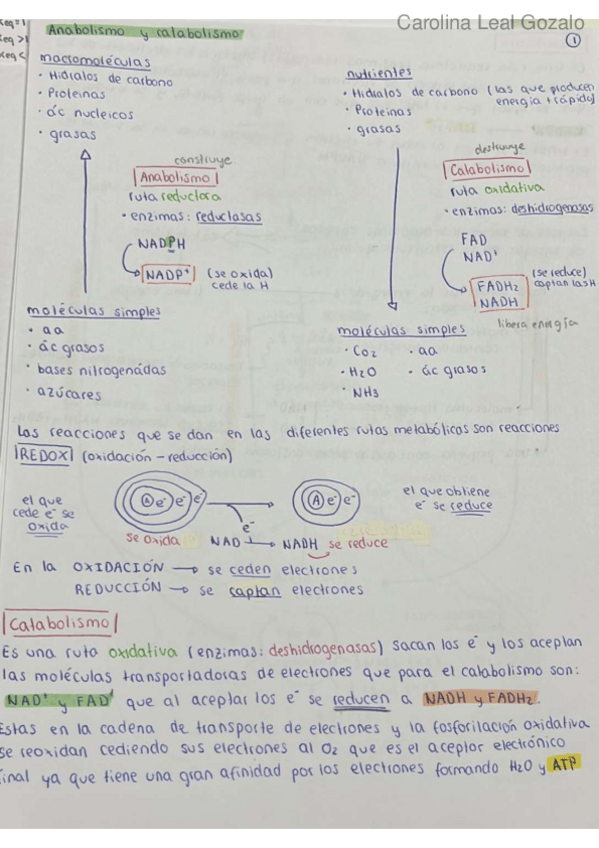 Carolina Leal Gozalo
Keq=1
Keq >1
Keq <
Anabolismo y catabolismo
1
macromoléculas
· Hidratos de carbono
· Proteinas
· ác nucleicos
· grasas
construye
Anabolismo
ruta reductora
· enzimas: reductasas
NADPH
NADP+ (se oxida)
cede la H
moléculas simples
· aa
· ác grasos
· bases nitrogenadas
· azúcares
nutrientes
· Hidratos de carbono (las que producen
energía + rápido)
· Proteinas
· grasas
destruye
Catabolismo
ruta oxidativa
· enzimas: deshidrogenasas
FAD
NAD+
FADH2
NADH
(se reduce)
captan las H
libera energía
moléculas simples
· CO2 · aa
· H2O · ác grasos
· NH3
Las reacciones que se dan en las diferentes rutas metabólicas son reacciones
REDOX (oxidación - reducción)
el que
cede e- se
oxida
A e- e- e-
se oxida
e-
NAD+ → NADH se reduce
A e- e-
el que obtiene
e- se reduce
En la OXIDACIÓN → se ceden electrones
REDUCCIÓN → se captan electrones
Catabolismo
Es una ruta oxidativa (enzimas: deshidrogenasas) sacan los e- y los aceptan
las moléculas transportadoras de electrones que para el catabolismo son:
NAD+ y FAD+ que al aceptar los e- se reducen a NADH y FADH2.
Estas en la cadena de transporte de electrones y la fosforilación oxidativa
se reoxidan cediendo sus electrones al O2 que es el aceptor electrónico
final ya que tiene una gran afinidad por los electrones formando H2O y ATP